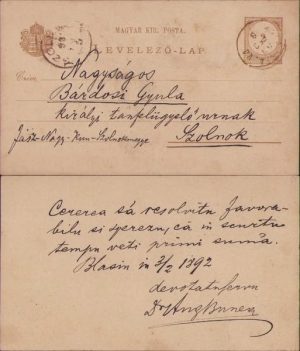 MAGYAR KIR. POSTA.
LEVELEZŐ-LAP.
Nagyságos
Bárdosi Gyula
királyi tanfelügyelő urnak
Jász-Nagy-Kun-Szolnokmegye
Szolnok
Cererea s'a resolvitu favora-
bilu si sperezu, că in scurtu
tempu veti primi suma.
Blasiu in 3/2 1892
devotatuservu
Dr Aug Bunea